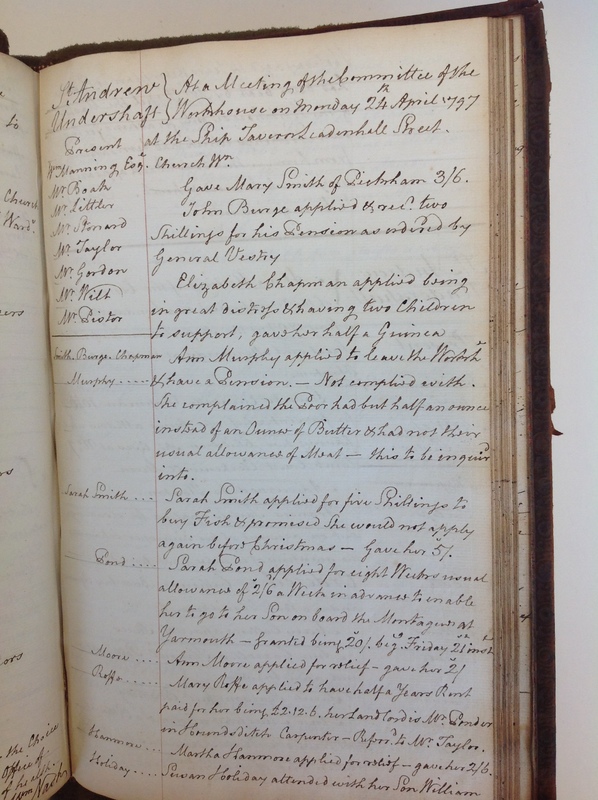 St. Andrew } At a Meeting of the Committee of the
Undershaft } Workhouse on Monday 24th April 1797
Present at the Ship Tavern Leadenhall Street.
Wm Manning Esqr. Church Wn.
Mr Boak
Mr. Littler
Mr. Stonard
Mr. Taylor
Mr. Gordon
Mr. Wilt
Mr. Pistor
Gave Mary Smith of Peckham 3/6.
John Burge applied & recd. two
Shillings for his Pension as ordered by
General Vestry
Elizabeth Chapman applied being
in great distress & having two Children
to support, gave her half a Guinea
Smith. Burge. Chapman
Ann Murphy applied to leave the Workh
Murphy ..... & have a Pension. — Not complied with.
She complained the Poor had but half an ounce
instead of an Ounce of Butter & had not their
usual allowance of Meat — this to be enquird
into.
Sarah Smith ... Sarah Smith applied for five Shillings to
buy Fish & promised She would not apply
again before Christmas — Gave her 5/.
Pond .... Sarah Pond applied for eight Weeks usual
allowance of 2/6 a Week in advance to enable
her to go to her Son on board the Montague at
Yarmouth — granted being 20/. beg. Friday 21st inst
Moore .... Ann Moore applied for relief — gave her 2/
Roffe .... Mary Roffe applied to have half a Years Rent
paid for her being £2.12.6. her Landlord is Mr. Ponder
in Houndsditch Carpenter — Referd. to Mr. Taylor.
Hanmore ... Martha Hanmore applied for relief — gave her 2/6.
Holiday .... Susan Holiday attended with her Son William
to
Church
Ward
ors
the Choice
Office of